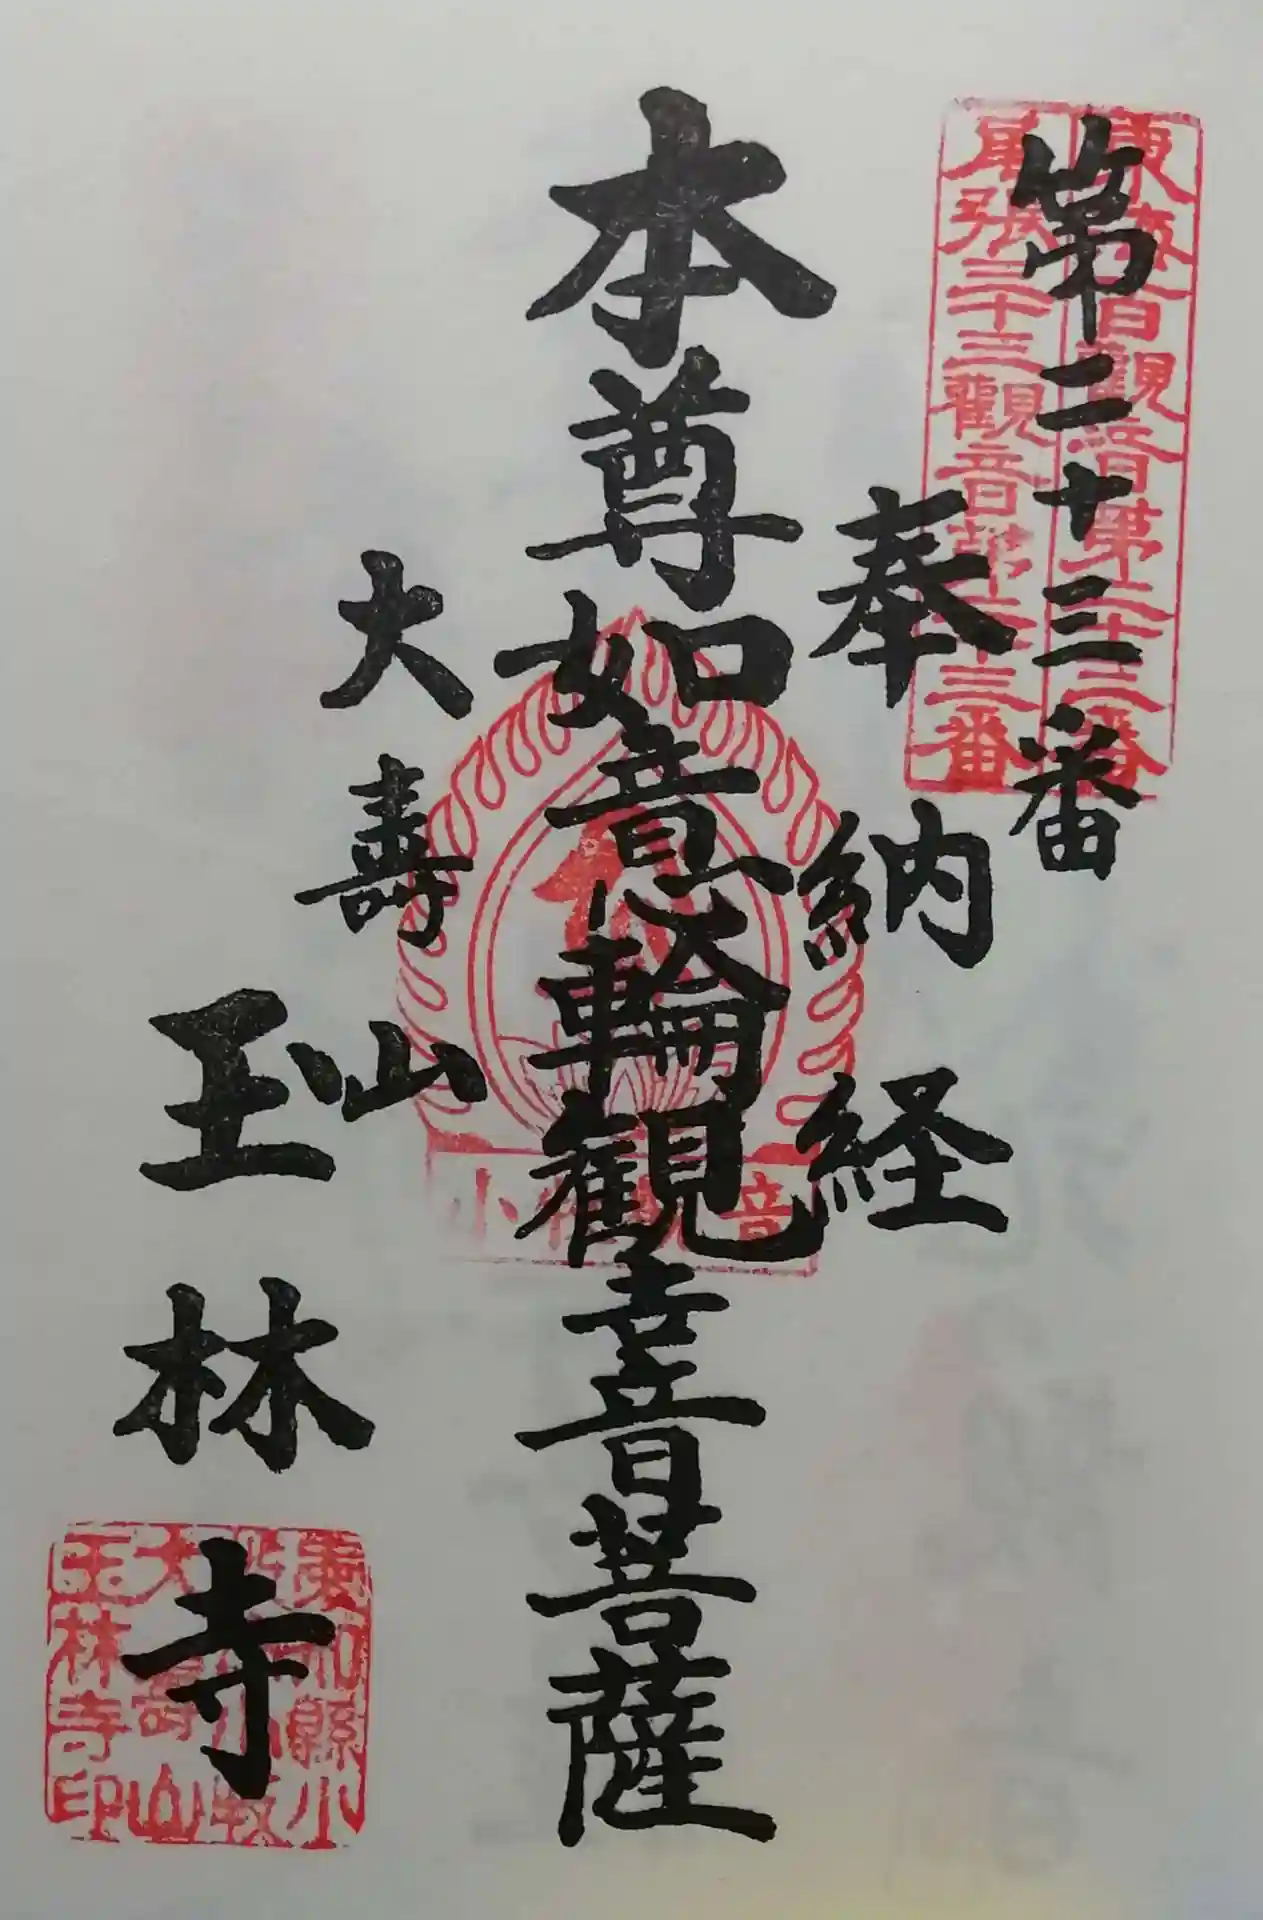 東海百観音第二十三番
尾張三十三観音第二十三番
第二十三番
奉納経
本尊如意輪観音菩薩
大壽山
玉林寺
小松観音
愛知縣小牧
大壽山
玉林寺印